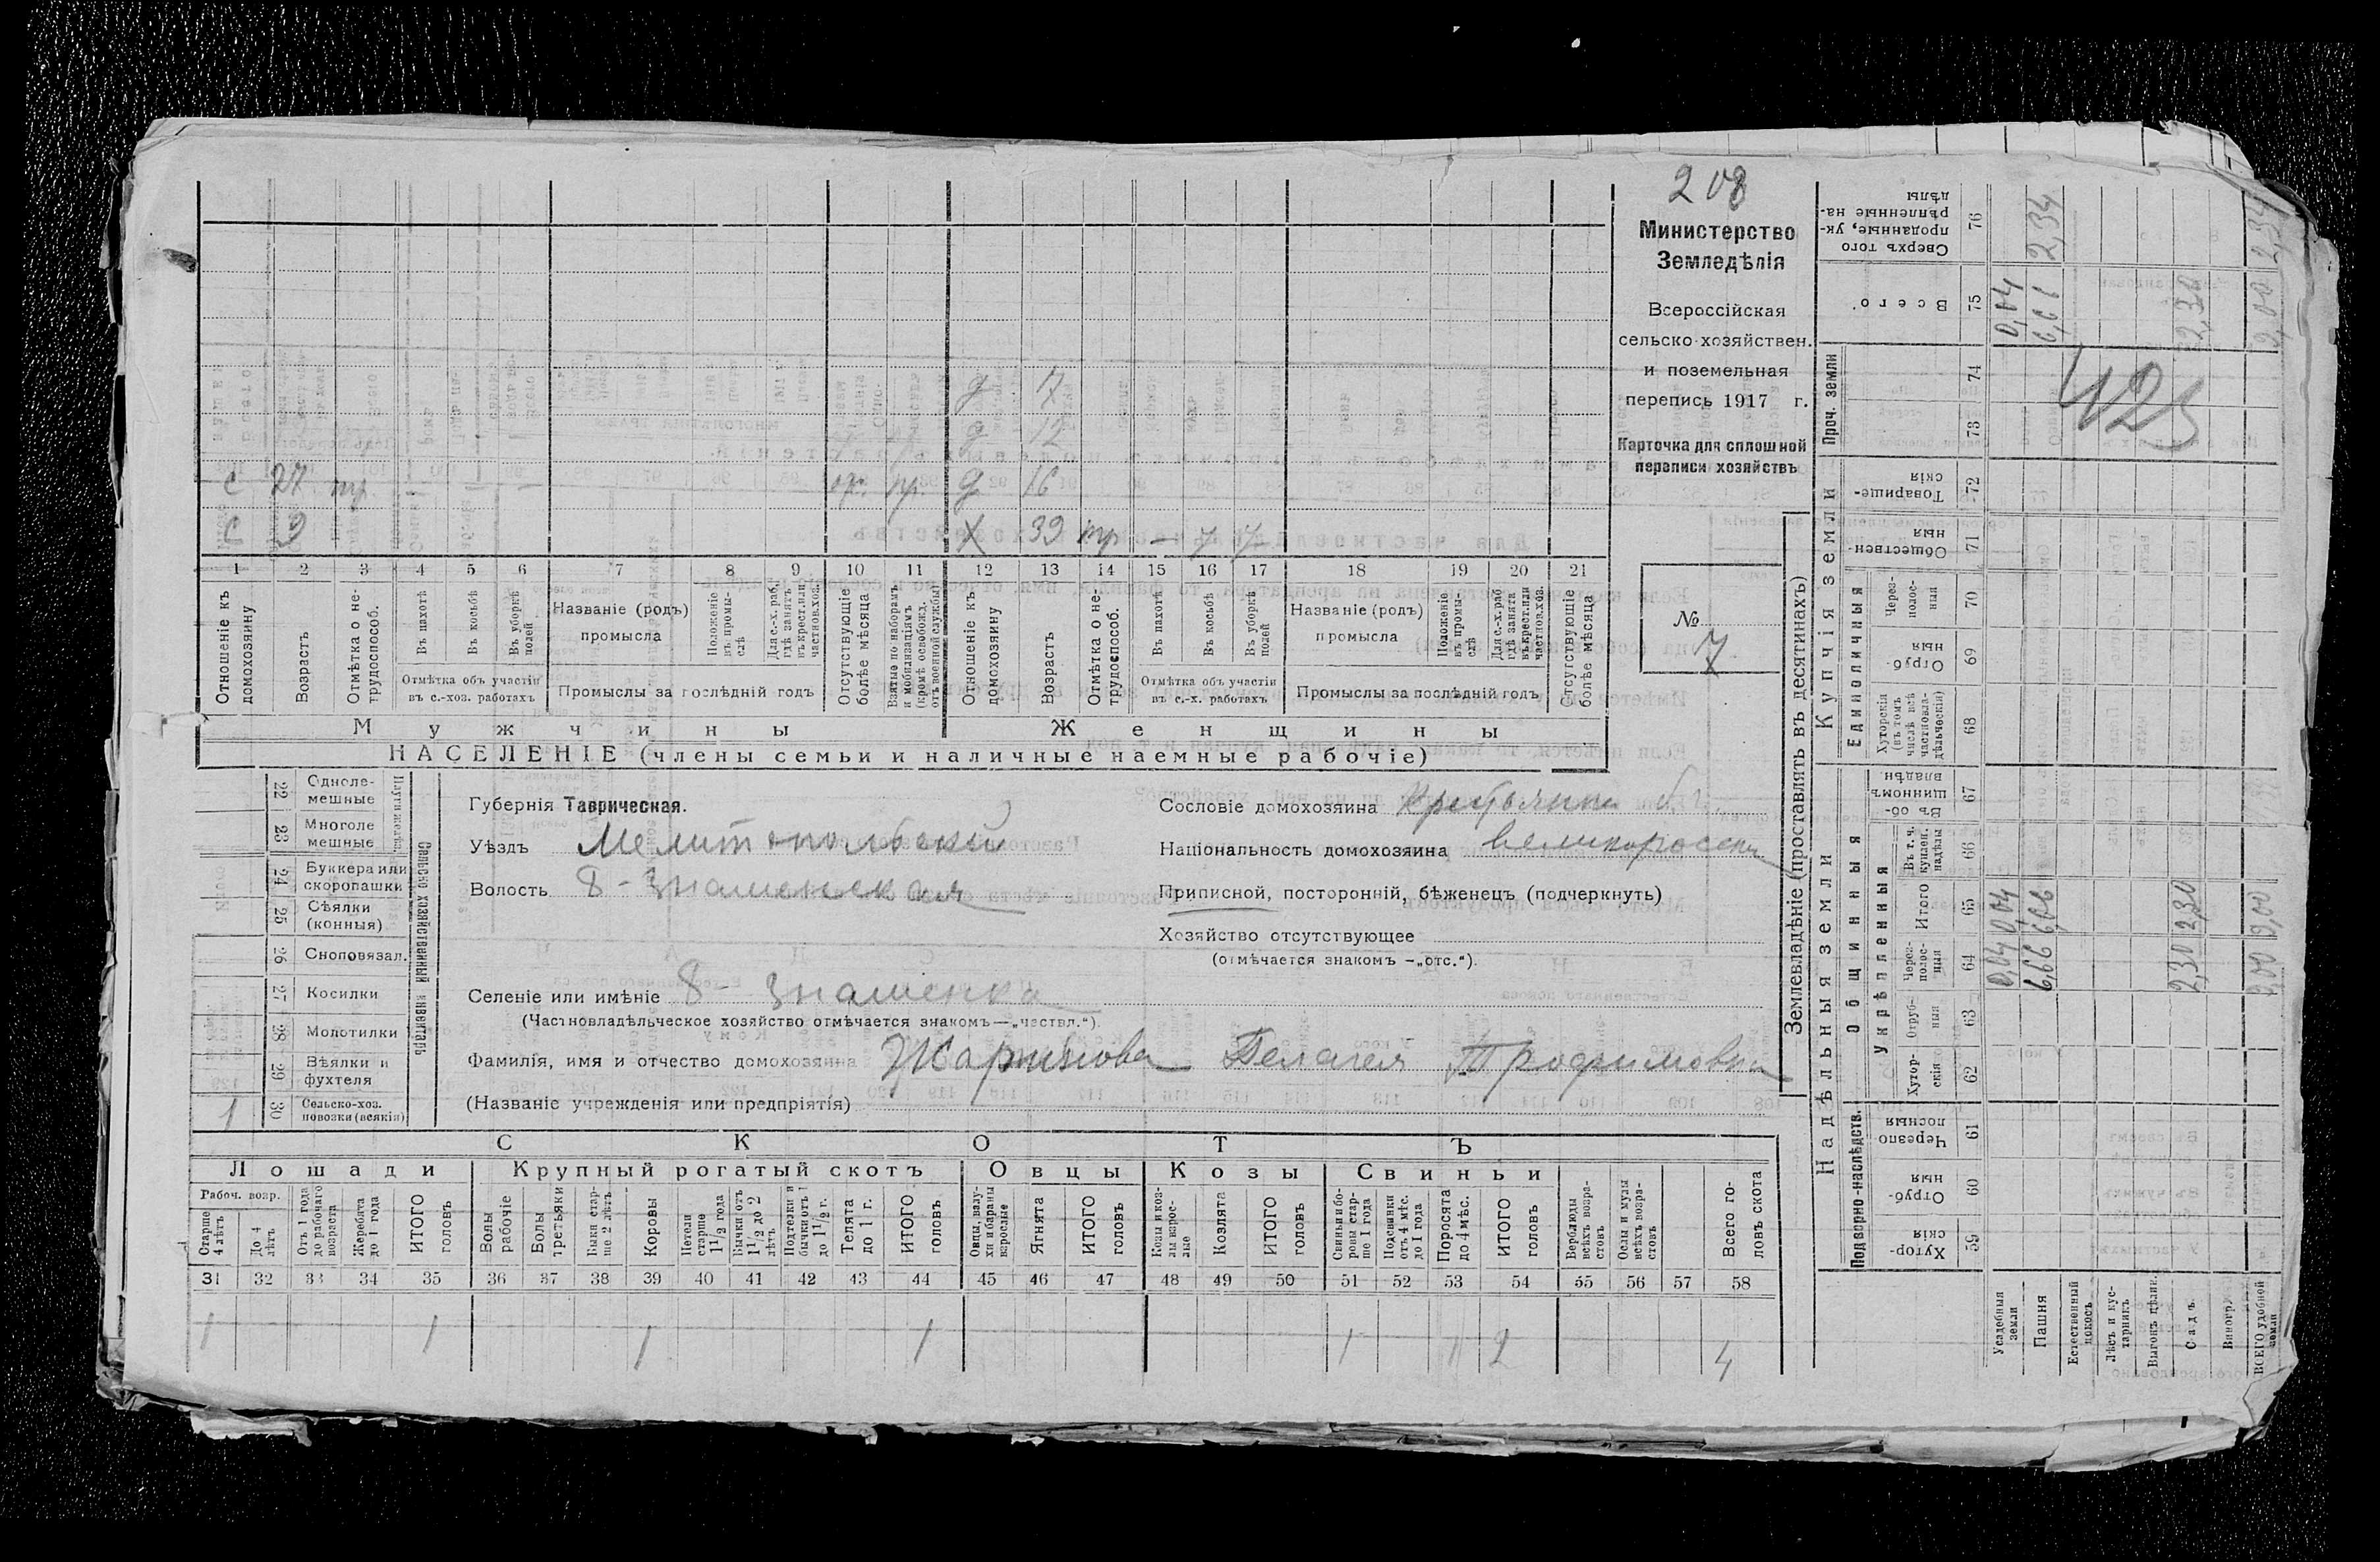 208
Министерство
Земледѣлія
Всероссійская
сельско-хозяйствен.
и поземельная
перепись 1917 г.
Карточка для сплошной
переписи хозяйствъ
№
7
д 17
д 12
с 27 тр. пр. д 16
с 9 х 39 тр
1 2 3 4 5 6 7 8 9 10 11 12 13 14 15 16 17 18 19 20 21
Отношеніе къ домохозяину
Возрастъ
Отмѣтка о нетрудоспособ.
Въ пахотѣ
Въ косьбѣ
Въ уборкѣ полей
Отмѣтка объ участіи въ с.-хоз. работахъ
Названіе (родъ) промысла
Положеніе въ промыслѣ
Для с.-х. раб. гдѣ занятъ въ крест. или частнов. хоз.
Промыслы за послѣдній годъ
Отсутствующіе болѣе мѣсяца
Взятые по наборамъ и мобилизаціямъ (кромѣ освобожд. отъ военной службы)
Отношеніе къ домохозяину
Возрастъ
Отмѣтка о нетрудоспособ.
Въ пахотѣ
Въ косьбѣ
Въ уборкѣ полей
Отмѣтка объ участіи въ с.-х. работахъ
Названіе (родъ) промысла
Положеніе въ промыслѣ
Для с.-х. раб. гдѣ занята въ крест. или частнов. хоз.
Промыслы за послѣдній годъ
Отсутствующіе болѣе мѣсяца
Мужчины Женщины
НАСЕЛЕНІЕ (члены семьи и наличные наемные рабочіе)
Губернія Таврическая.
Уѣздъ Мелитопольскій
Волость 8-Знаменская
Сословіе домохозяина
Національность домохозяина великоросска
Приписной, посторонній, бѣженецъ (подчеркнуть)
Хозяйство отсутствующее
(отмѣчается знакомъ —„отс.“).
Селеніе или имѣніе 8- Знаменка
(Частновладѣльческое хозяйство отмѣчается знакомъ—„частвл.“).
Фамилія, имя и отчество домохозяина Пелагея Трофимовна
(Названіе учрежденія или предпріятія)
Сельско-хозяйственный инвентарь
22 Однолемешные
23 Многолемешные
24 Буккера или скоропашки
25 Сѣялки (конныя)
26 Сноповязал.
27 Косилки
28 Молотилки
29 Вѣялки и фухтеля
1 30 Сельско-хоз. повозки (всякія)
СКОТЪ
Лошади Крупный рогатый скотъ Овцы Козы Свиньи
Рабоч. возр.
Старше 4 лѣтъ
До 4 лѣтъ
Отъ 1 года до рабочаго возраста
Жеребята до 1 года
ИТОГО головъ
Волы рабочіе
Волы третьяки
Быки старше 2 лѣтъ
Коровы
Нетели старше 1 1/2 года
Бычки отъ 1 1/2 до 2 лѣтъ
Подтелки и бычки отъ 1 до 1 1/2 г.
Телята до 1 г.
ИТОГО головъ
Овцы, валухи и бараны взрослые
Ягнята
ИТОГО головъ
Козы и козлы взрослые
Козлята
ИТОГО головъ
Свиньи и боровы старше 1 года
Подсвинки отъ 4 мѣс. до 1 года
Поросята до 4 мѣс.
ИТОГО головъ
Верблюды всѣхъ возрастовъ
Ослы и мулы всѣхъ возрастовъ
Всего головъ скота
31 32 33 34 35 36 37 38 39 40 41 42 43 44 45 46 47 48 49 50 51 52 53 54 55 56 57 58
1 1 1 1 1 1 2 4
Землевладѣніе (проставлять въ десятинахъ)
Надѣльныя земли Купчія земли Проч. земли
Подворно-наслѣдств. Общинныя Единоличныя
Укрѣпленныя
Хуторскія 59
Отрубныя 60
Черезполосныя 61
Хуторскія 62
Отрубныя 63
Черезполосныя 64
Итого 65
Въ т. ч. куплен. надѣлы 66
Въ общинномъ владѣн 67
Хуторскія (въ томъ числѣ всѣ частновладѣльческія) 68
Отрубныя 69
Черезполосныя 70
Общественныя 71
Товарищескія 72
73
74
Всего. 75
Сверхъ того проданные, укрѣпленные надѣлы 76
Усадебныя земли 0,04 0,04 0,04
Пашня 6,66 2,34
Естественный покосъ
Лѣсъ и кустарникъ
Выгонъ цѣлин.
Садъ 2,30 2,30 2,30
Виногр.
ВСЕГО удобной земли 9,00 9,00 9,00 2,34
425